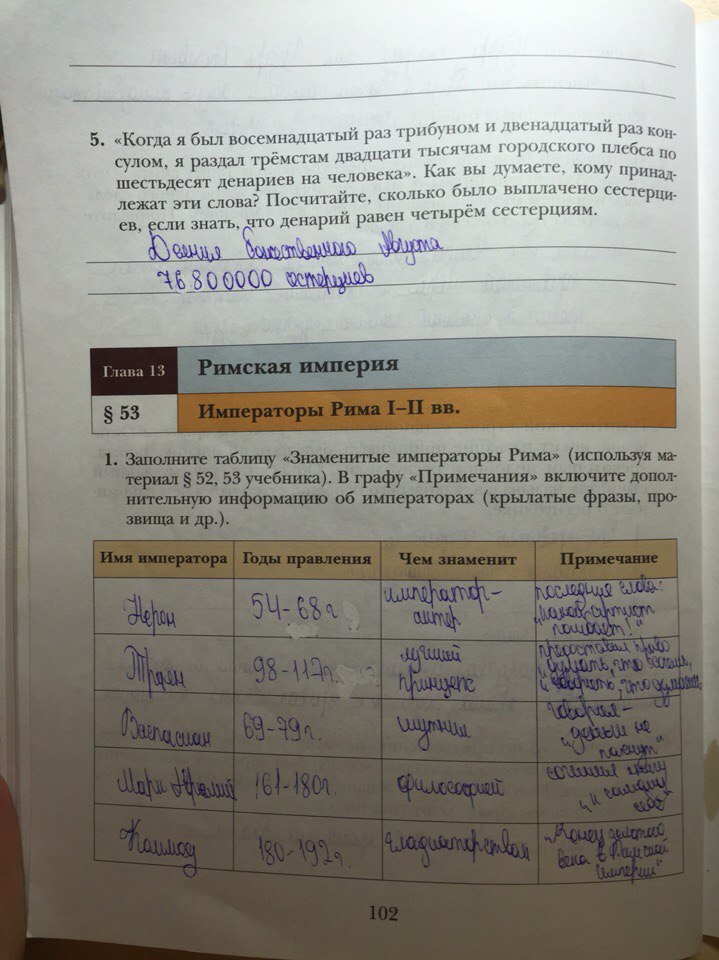 5. «Когда я был восемнадцатый раз трибуном и двенадцатый раз кон-
сулом, я раздал трёмстам двадцати тысячам городского плебса по
шестьдесят денариев на человека». Как вы думаете, кому принад-
лежат эти слова? Посчитайте, сколько было выплачено сестерци-
ев, если знать, что денарий равен четырём сестерциям.
Деяния божественного Августа
76800000
Глава 13
Римская империя
§ 53
Императоры Рима I–II вв.
1. Заполните таблицу «Знаменитые императоры Рима» (используя ма-
териал § 52, 53 учебника). В графу «Примечания» включите допол-
нительную информацию об императорах (крылатые фразы, про-
звища и др.).
Имя императора Годы правления Чем знаменит Примечание
Нерон 54-68г. император- последние слова:
актер погибает!"
Траян 98-117г. лучший предоставил право
принцепс "думать, что хочешь,
и говорить, что думаешь
Веспасиан 69-79г. шутник говорил-
"деньги не
пахнут"
Марк Аврелий 161-180г. философией сочинил книгу
"К самому
себе"
Коммод 180-192г. гладиаторством "Конец золотого
века в Римской
Империи"
102